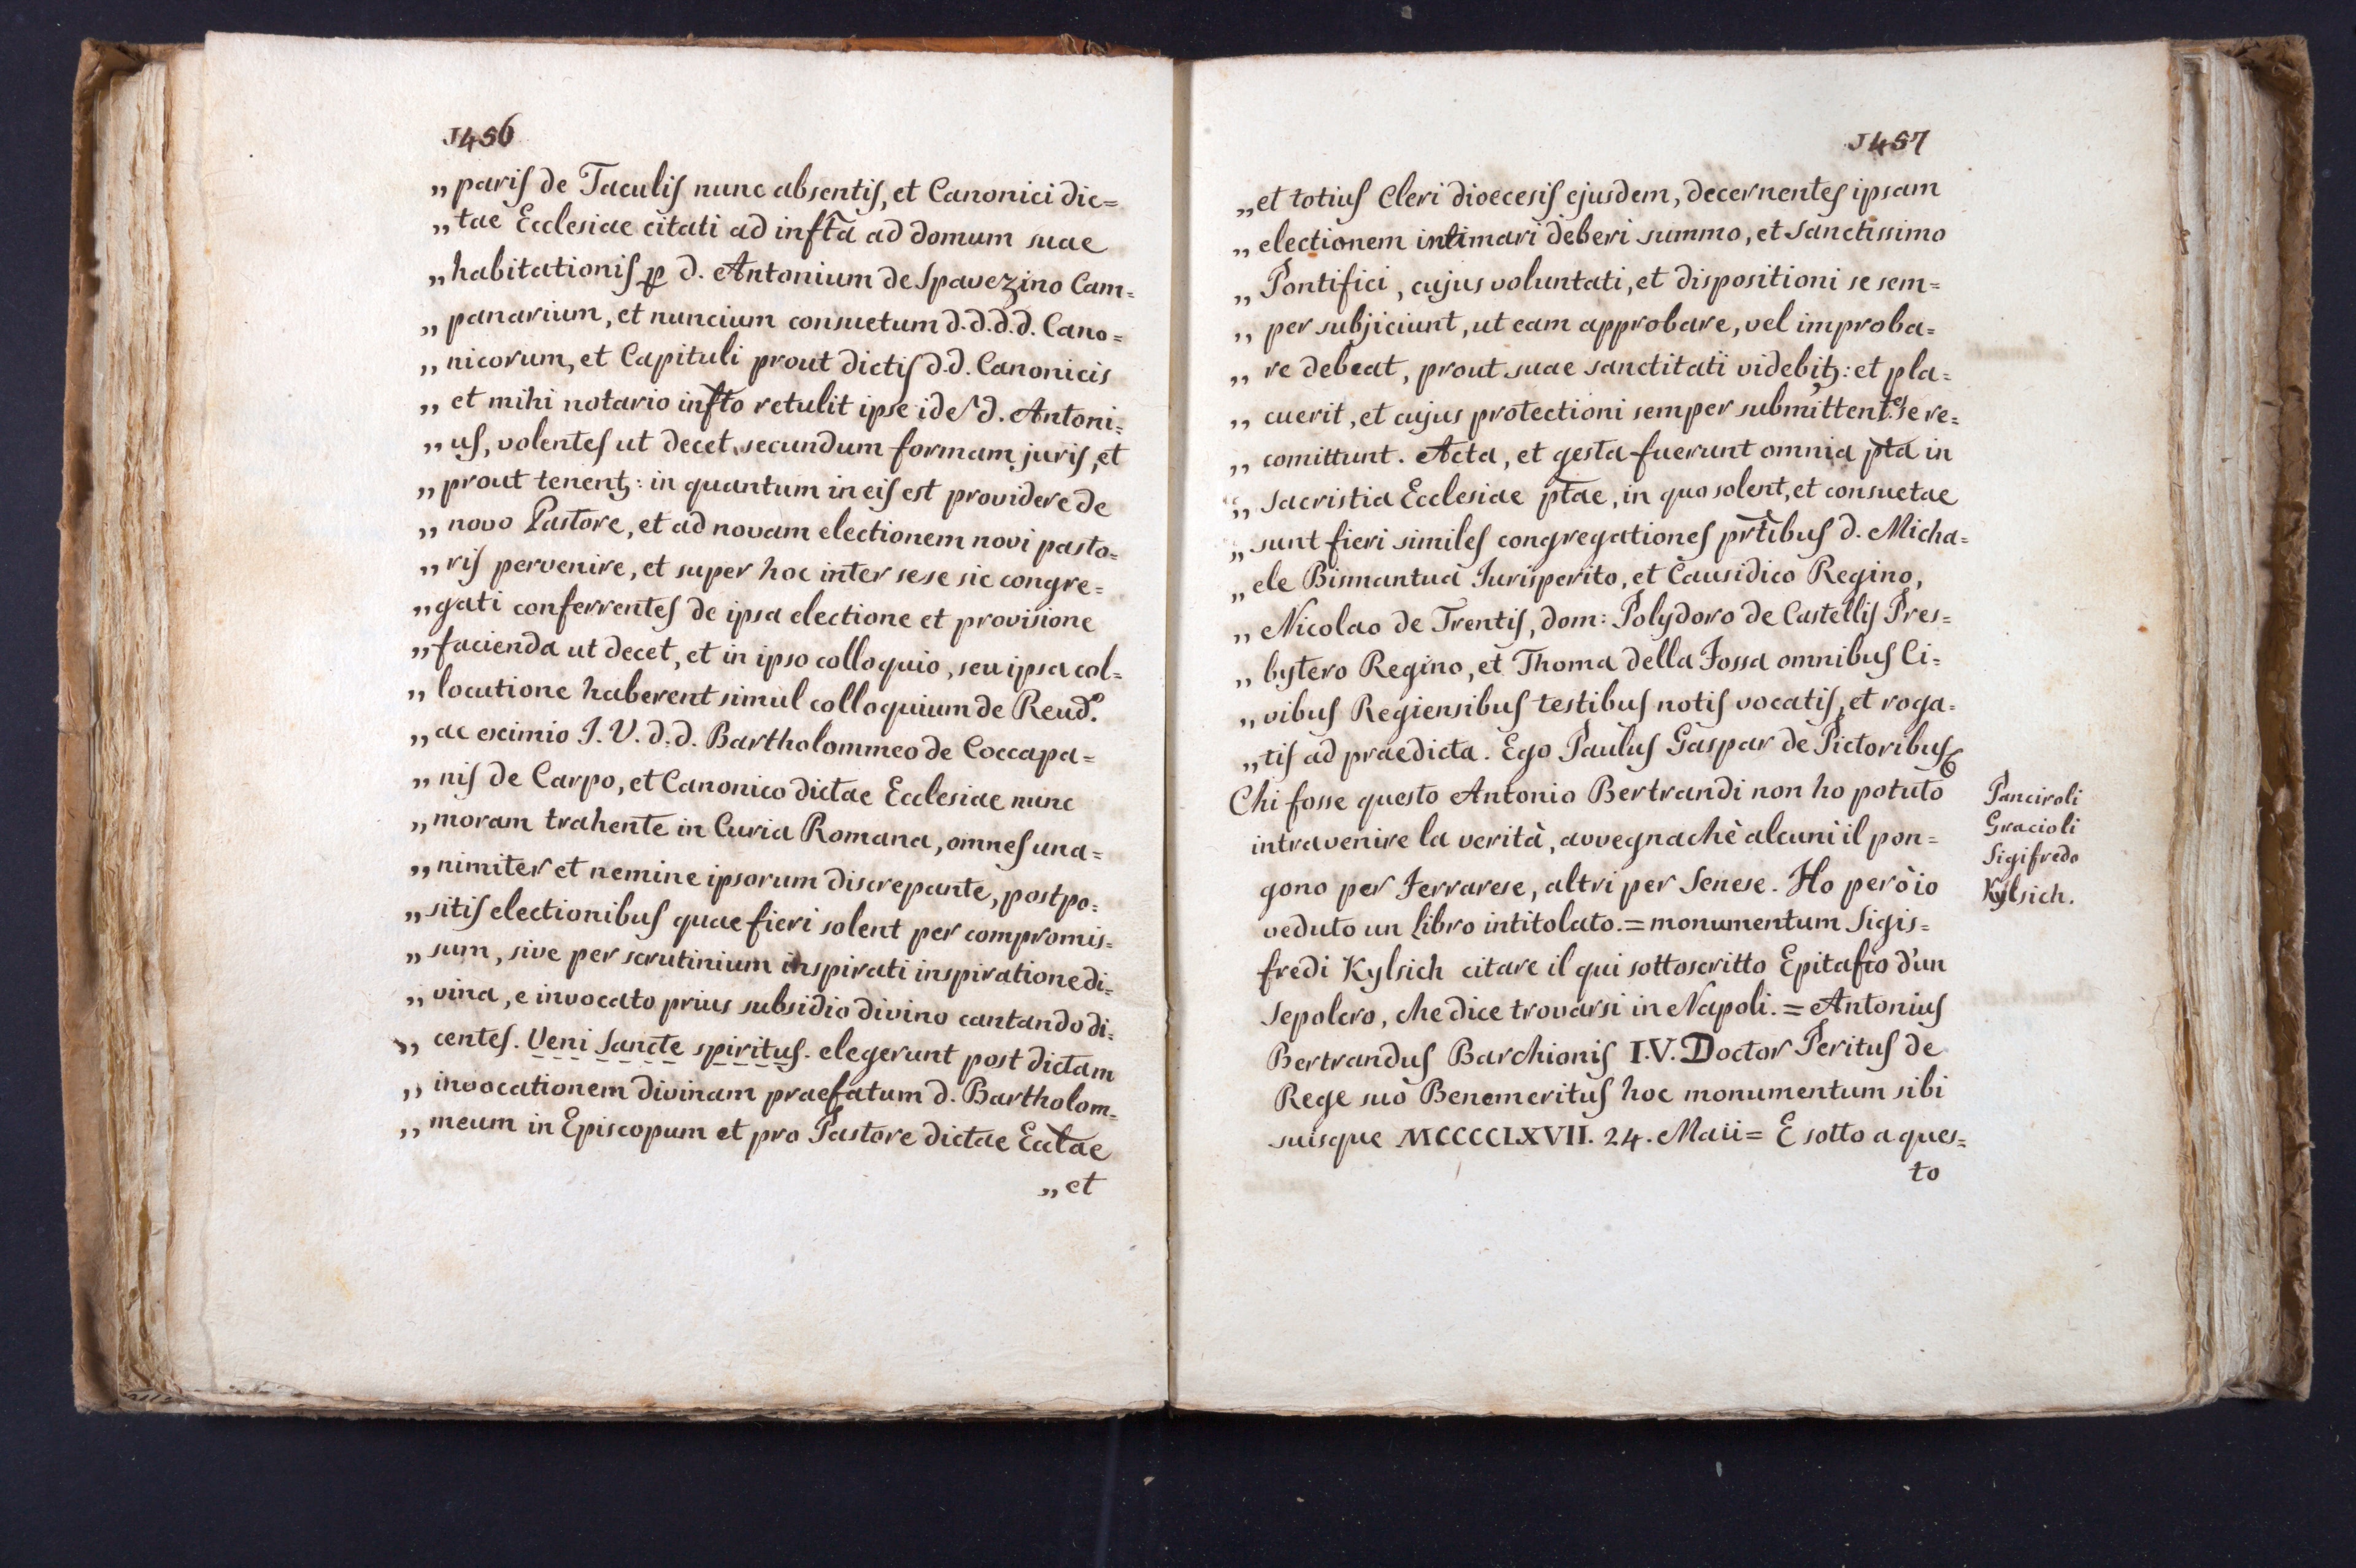 1456
„ paris de Taculis nunc absentis, et Canonici dic=
„ tae Ecclesiae citati ad inftã ad domum suae
„ habitationis ꝑ d. Antonium de Spavezino Cam=
„ panarium, et nuncium consuetum d.d.d.d. Cano=
„ nicorum, et Capituli prout dictis d.d. Canonicis
„ et mihi notario infto retulit ipse ide d. Antoni=
„ us, volentes ut decet secundum formam juris, et
„ prout tenentʒ: in quantum in eis est providere de
„ novo Pastore, et ad novam electionem novi pasto=
„ ris pervenire, et super hoc inter sese sic congre=
„ gati conferrentes de ipsa electione et provisione
„ facienda ut decet, et in ipso colloquio, seu ipsa col=
„ locutione haberent simul colloquium de Reud.º
„ ac eximio I. V. d. d. Bartholommeo de Coccapa=
„ nis de Carpo, et Canonico dictae Ecclesiae nunc
„ moram trahente in Curia Romana, omnes una=
„ nimiter et nemine ipsorum discrepante, postpo=
„ sitis electionibus quae fieri solent per compromis=
„ sum, sive per scrutinium inspirati inspiratione di=
„ vina, e invocato prius subsidio divino cantando di=
„ centes. Veni Sancte spiritus. elegerunt post dictam
„ invocationem divinam praefatum d. Bartholom=
„ meum in Episcopum et pro Pastore dictae Ecctae
„ et
1457
„ et totius Cleri dioecesis ejusdem, decernentes ipsam
„ electionem intimari deberi summo, et Sanctissimo
„ Pontifici, cujus voluntati, et dispositioni se sem=
„ per subjiciunt, ut eam approbare, vel improba=
„ re debeat, prout suae sanctitati videbitʒ: et pla=
„ cuerit, et cujus protectioni semper submittentes se re=
„ comittunt. Acta, et gesta fuerunt omnia pta in
„ sacristia Ecclesiae ptae, in qua solent, et consuetae
„ sunt fieri similes congregationes prtibus d. Micha=
„ ele Bismantua Jurisperito, et Causidico Regino,
„ Nicolao de Trentis, dom: Polydoro de Castellis Pres=
„ bytero Regino, et Thoma della Fossa omnibus Ci=
„ vibus Regiensibus testibus notis vocatis, et roga=
„ tis ad praedicta. Ego Paulus Gaspar de Pictoribus
Chi fosse questo Antonio Bertrandi non ho potuto
intravenire la verità, avvegnachè alcuni il pon=
gono per Ferrarese, altri per Senese. Ho però io
veduto un Libro intitolato.= monumentum Sigis=
fredi Kylsich citare il qui sottoscritto Epitafio d'un
sepolcro, che dice trovarsi in Napoli.= Antonius
Bertrandus Barchionis I.V. Doctor Peritus de
Rege suo Benemeritus hoc monumentum sibi
suisque MCCCCLXVII. 24. Maii= E sotto a ques=
to
Panciroli
Gracioli
Sigifredo
Kylsich.